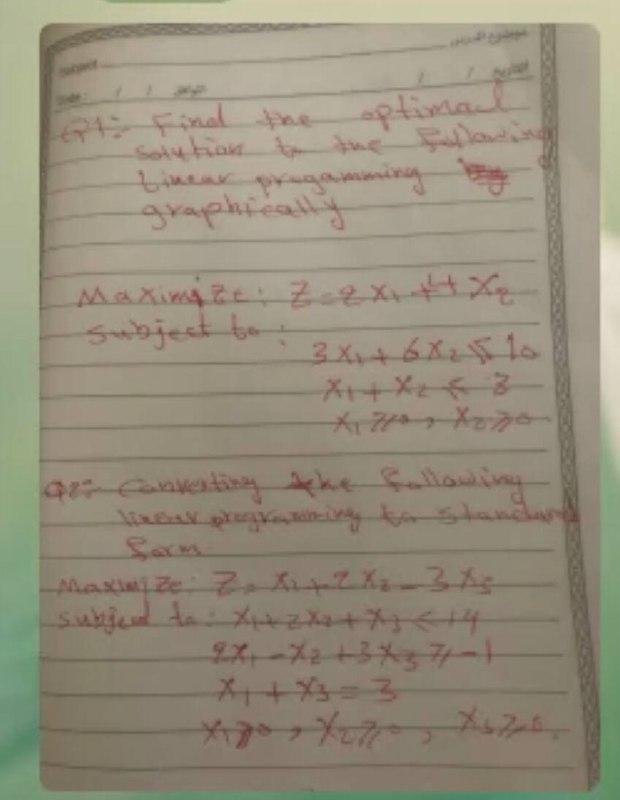 موضوع الدرس
التاريخ / /
Date: / /
Q1:- Find the optimal
solution to the following
linear progamming
graphically
Maximize: Z = 2 X₁ + 4 X₂
subject to:
3X₁ + 6X₂ ≤ 10
X₁ + X₂ ≤ 3
X₁ ≥ 0, X₂ ≥ 0
Q2:- Converting the following
linear programming to standard
form
Maximize: Z = X₁ + 2 X₂ - 3 X₃
subject to: X₁ + 2X₂ + X₃ ≤ 14
2X₁ - X₂ + 3X₃ ≥ -1
X₁ + X₃ = 3
X₁ ≥ 0, X₂ ≥ 0, X₃ ≥ 0.